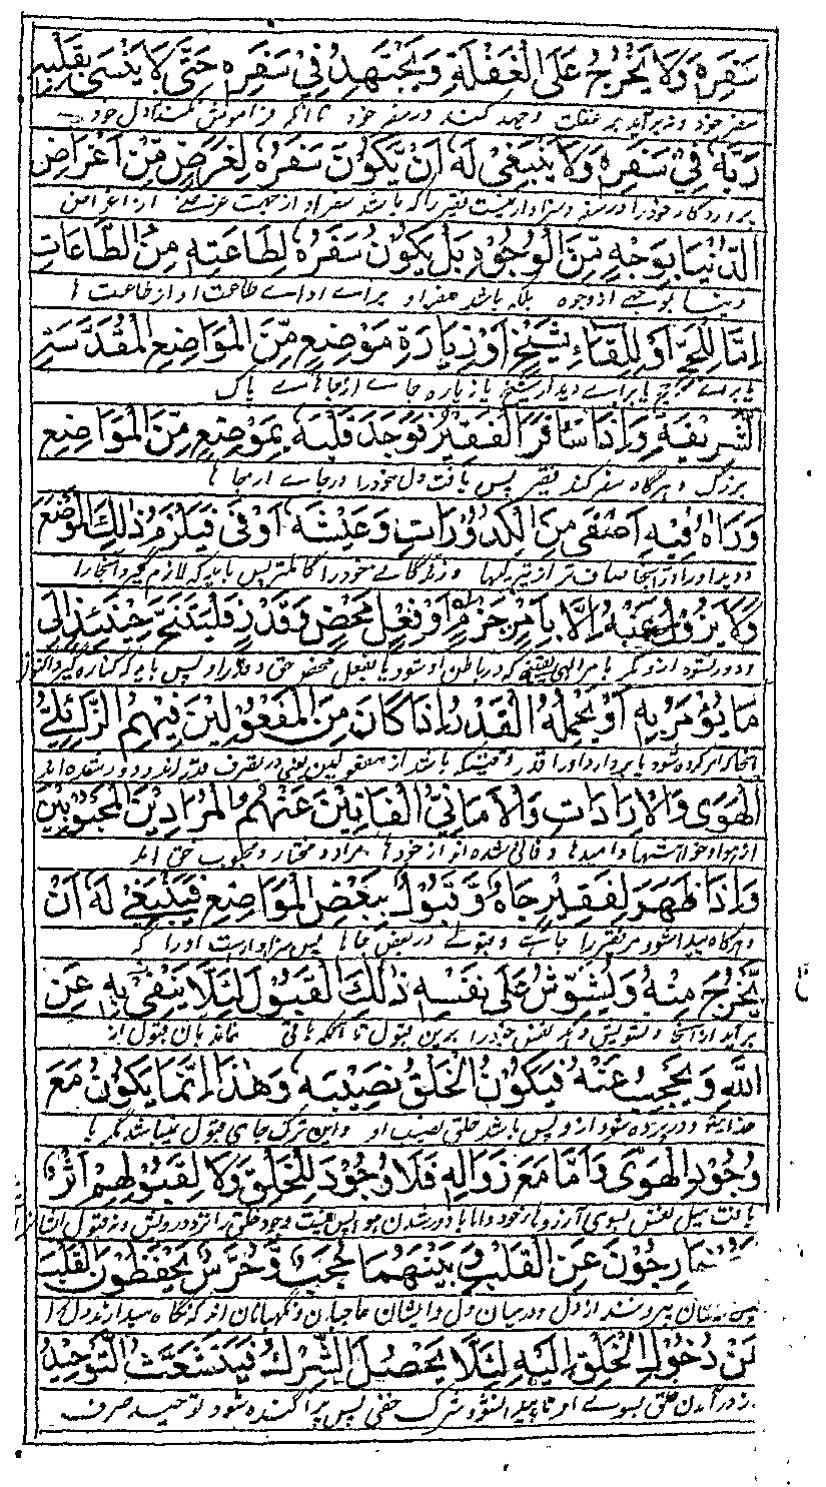 سَفَرِهٖ وَلَا يَخْرُجُ عَلَى الْغَفْلَةِ وَيَجْتَهِدُ فِيْ سَفَرِهٖ حَتّٰى لَا يَنْسٰى بِقَلْبِهٖ
سفر خود و نه برآید بر غفلت و جهد کند در سفر خود تا آنکه فراموش نکند دل خود
رَبَّهٗ فِيْ سَفَرِهٖ وَلَا يَنْبَغِيْ لَهٗ اَنْ يَّكُوْنَ سَفَرُهٗ لِغَرَضٍ مِّنْ اَغْرَاضِ
پروردگار خود را در سفر و سزاوار نیست فقیر را که باشد سفر او از جهت غرضے از اغراض
الدُّنْيَا بِوَجْهٍ مِّنَ الْوُجُوْهِ بَلْ يَكُوْنُ سَفَرُهٗ لِطَاعَتِهٖ مِنَ الطَّاعَاتِ
دنیا بوجهے از وجوه بلکه باشد سفر او براے اداے طاعت او از طاعت ها
اِمَّا لِلْحَجِّ اَوْ لِلِقَاءِ شَيْخٍ اَوْ زِيَارَةِ مَوْضِعٍ مِّنَ الْمَوَاضِعِ الْمُقَدَّسَةِ
یا براے حج یا براے دیدار شیخ یا زیاره جاے از جاهاے پاک
الشَّرِيْفَةِ وَاِذَا سَافَرَ الْفَقِيْرُ فَوَجَدَ قَلْبَهٗ بِمَوْضِعٍ مِّنَ الْمَوَاضِعِ
بزرگ و هرگاه سفر کند فقیر پس یافت دل خود را در جاے از جا ها
وَرَاٰهُ فِيْهِ اَصْفٰى مِنَ الْكُدُوْرَاتِ وَعَيْشَهٗ اَوْفٰى فَيَلْزَمُ ذٰلِكَ الْمَوْضِعَ
و دید او را در آنجا صاف تر از تیرگیها و زندگانے خود را کاملتر پس باید که لازم گیرد آنجا را
وَلَا يَزُوْلُ عَنْهُ اِلَّا بِاَمْرٍ جَزْمٍ اَوْ فِعْلٍ مَحْضٍ وَقَدَرٍ فَلْيَتَنَحَّ حِيْنَئِذٍ اِلٰى
و دور نشود ازو مگر بامر الهی که در باطن او شود یا بفعل محض حق و قدر او پس باید که کناره گیرد
مَا يُؤْمَرُ بِهٖ اَوْ يَحْمِلُهُ الْقَدْرُ اِذَا كَانَ مِنَ الْمَفْعُوْلِيْنَ فِيْهِمُ الزَّائِلِيْ
آنجا که امر کرده شود یا بردارد او را قدر وقتیکه باشد از مفعولین یعنی در تصرف قدر اند و دور شده اند
الْهَوٰى وَالْاِرَادَاتِ وَالْاَمَانِيِّ الْفَانِيْنَ عَنْهُمُ الْمُرَادِيْنَ الْمَحْبُوْبِيْنَ
از هوا و خواهشها و امیدها و فانی شده اند از خودها مراد و مختار و محبوب حق اند
وَاِذَا ظَهَرَ لِفَقِيْرٍ جَاهٌ وَّ قَبُوْلٌ بِبَعْضِ الْمَوَاضِعِ فَيَنْبَغِيْ لَهٗ اَنْ
و هرگاه پیدا شود مر فقیر را جاهے و قبولے در بعض جا ها پس سزاوار است او را که
يَّخْرُجَ مِنْهُ وَيُشَوِّشَ عَلٰى نَفْسِهٖ ذٰلِكَ الْقَبُوْلَ لِئَلَّا يَبْقٰى بِهٖ عَنِ
برآید از آنجا و تشویش دهد نفس خود را برین قبول تا آنکه باقی نماند بآن قبول از
اللّٰهِ وَيُحْجَبُ عَنْهُ فَيَكُوْنُ الْخَلْقُ نَصِيْبَهٗ وَهٰذَا اِنَّمَا يَكُوْنُ مَعَ
خدایتعالی و در پرده شود ازو پس باشد خلق نصیب او و این ترک جاے قبول نمیباشد مگر با
وُجُوْدِ الْهَوٰى وَاَمَّا مَعَ زَوَالِهٖ فَلَا وُجُوْدَ لِلْخَلْقِ وَلَا لِقَبُوْلِهِمْ اَثَرٌ
یافت میل نفس بسوی آرزوهای خود و اما با دور شدن هوا پس نیست وجود خلق را نزد درویش و نه قبول
خَارِجُوْنَ عَنِ الْقَلْبِ وَبَيْنَهُمَا حُجُبٌ وَّ حُرَّسٌ يَحْفَظُوْنَ الْقَلْبَ
بیرونند از دل و درمیان دل و ایشان حاجبان و نگهبانان اند که نگاه میدارند دل را
مِنْ دُخُوْلِ الْخَلْقِ اِلَيْهِ لِئَلَّا يَحْصُلَ الشِّرْكُ فَيَتَشَعَّثَ التَّوْحِيْدُ
از درآمدن خلق بسوے او تا پیدا نشود شرک خفی پس پراگنده شود توحید صرف